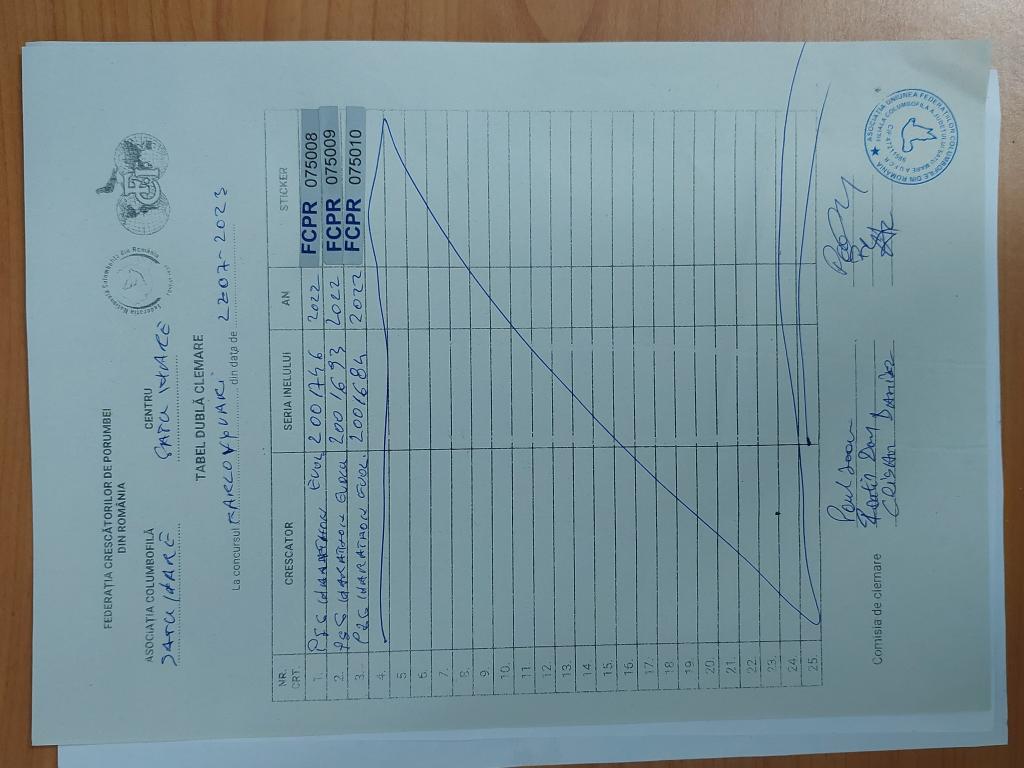 FEDERAȚIA CRESCĂTORILOR DE PORUMBEI
DIN ROMÂNIA
Federația Națională Columbofilă din România
FCPR
ASOCIAȚIA COLUMBOFILĂ
SATU MARE
CENTRU
SATU MARE
TABEL DUBLĂ CLEMARE
La concursul din data de 22-07-2023
NR. CRT. CRESCATOR SERIA INELULUI AN STICKER
1. P&S MARATHON EVOL 2001746 2022 FCPR 075008
2. P&S MARATHON EVOLU 2001693 2022 FCPR 075009
3. P&S MARATHON EVOL. 2001684 2022 FCPR 075010
4.
5
6.
7.
8.
9.
10.
11
12.
13.
14.
15.
16.
17.
18
19.
20.
21.
22.
23.
24.
25.
Comisia de clemare
Paul Ioan
CRISTIAN DANIEL
ASOCIAȚIA UNIUNEA FEDERAȚIILOR COLUMBOFILE DIN ROMÂNIA
FILIALA COLUMBOFILA A JUDEȚULUI SATU MARE A U.F.C.R.